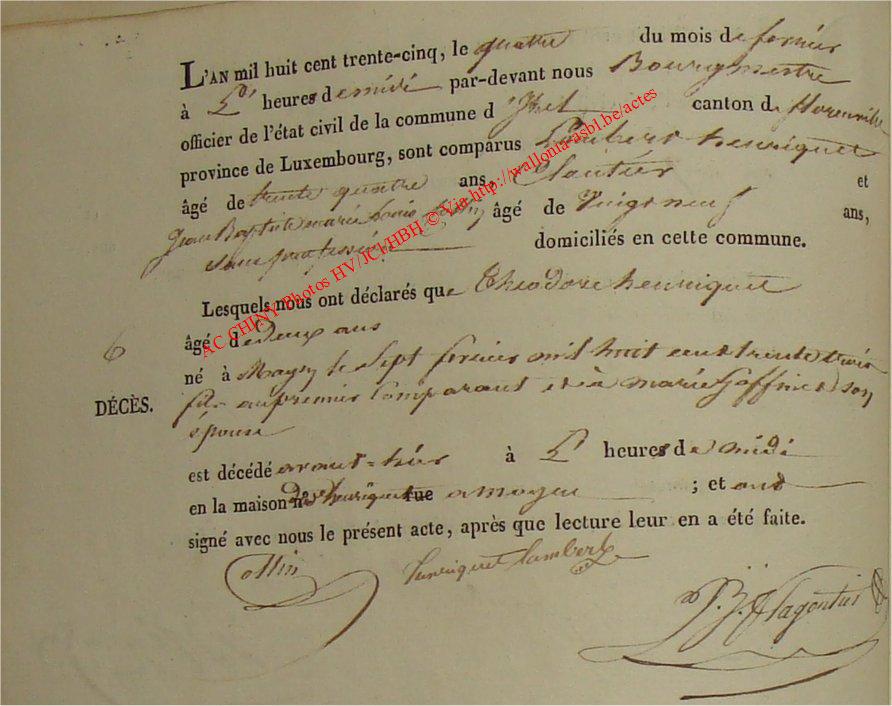 L'AN mil huit cent trente-cinq, le quatre du mois de fevrier
à L' heures de midi par-devant nous Bourgmestre
officier de l'état civil de la commune d' canton de florenville
province de Luxembourg, sont comparus Lambert henriquet
âgé de trente quatre ans, Cloutier et
Jean Baptiste marie Louis âgé de Vingt neuf ans,
sans profession domiciliés en cette commune.
Lesquels nous ont déclarés que Theodore henriquet
6 âgé de deux ans
né à Moyen le Sept fevrier mil huit cent trente trois
DÉCÈS. fils au premier Comparant et à marie son
épouse
est décédé avant-hier à L' heures de midi
en la maison n° henriquet rue a moyen ; et ont
signé avec nous le présent acte, après que lecture leur en a été faite.
Collin henriquet lambert
J. B. Hagontier
AC CHINY Photos HV/JCI/HBH © Via http://wallonia-asbl.be/actes